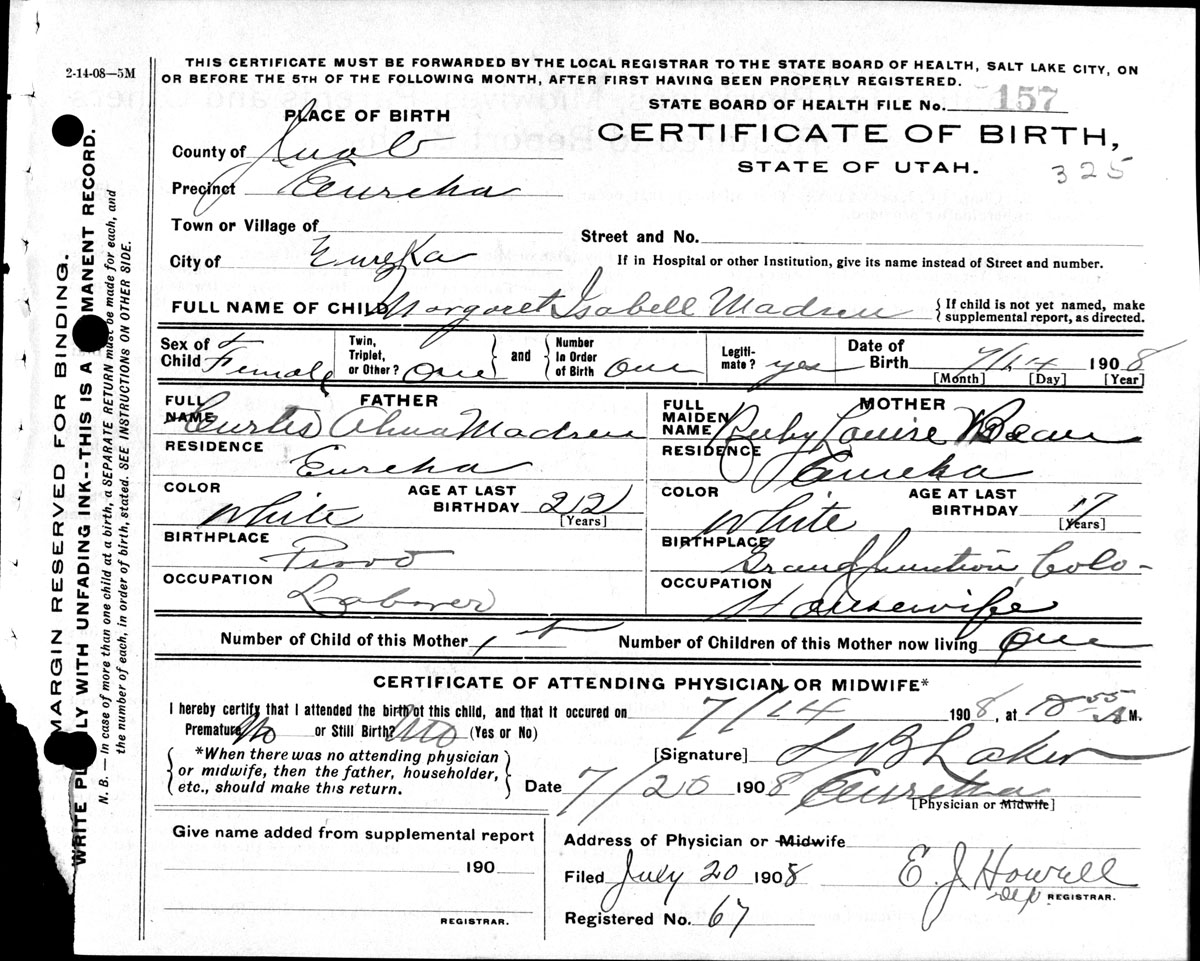 2-14-08—5M
THIS CERTIFICATE MUST BE FORWARDED BY THE LOCAL REGISTRAR TO THE STATE BOARD OF HEALTH, SALT LAKE CITY, ON
OR BEFORE THE 5TH OF THE FOLLOWING MONTH, AFTER FIRST HAVING BEEN PROPERLY REGISTERED.
STATE BOARD OF HEALTH FILE No. 157
PLACE OF BIRTH
CERTIFICATE OF BIRTH,
STATE OF UTAH.
325
County of Juab
Precinct Eureka
Town or Village of
Street and No.
City of Eureka
If in Hospital or other Institution, give its name instead of Street and number.
FULL NAME OF CHILD Margaret Isabell Madsen
{If child is not yet named, make
supplemental report, as directed.
Sex of Child Female
Twin, Triplet, or Other? One } and { Number In Order of Birth One
Legiti-mate? yes
Date of Birth 7/14 1908
[Month] [Day] [Year]
FATHER
FULL NAME Curtis Alma Madsen
RESIDENCE Eureka
COLOR White
AGE AT LAST BIRTHDAY 22
[Years]
BIRTHPLACE Provo
OCCUPATION Laborer
MOTHER
FULL MAIDEN NAME Ruby Louise Bean
RESIDENCE Eureka
COLOR White
AGE AT LAST BIRTHDAY 17
[Years]
BIRTHPLACE Grand Junction, Colo-
OCCUPATION Housewife
Number of Child of this Mother 1st
Number of Children of this Mother now living One
CERTIFICATE OF ATTENDING PHYSICIAN OR MIDWIFE*
I hereby certify that I attended the birth of this child, and that it occured on 7/14 1908, at 12 55 A M.
Premature No or Still Birth? No (Yes or No)
{*When there was no attending physician
or midwife, then the father, householder,
etc., should make this return.}
[Signature] L B Laker
Date 7/20 1908 Eureka
[Physician or Midwife]
Give name added from supplemental report
190
REGISTRAR.
Address of Physician or Midwife
Filed July 20 1908 E. J. Howell
Dep REGISTRAR.
Registered No. 67
MARGIN RESERVED FOR BINDING.
WRITE PLAINLY WITH UNFADING INK--THIS IS A PERMANENT RECORD.
N. B. — In case of more than one child at a birth, a SEPARATE RETURN must be made for each, and
the number of each, in order of birth, stated. SEE INSTRUCTIONS ON OTHER SIDE.